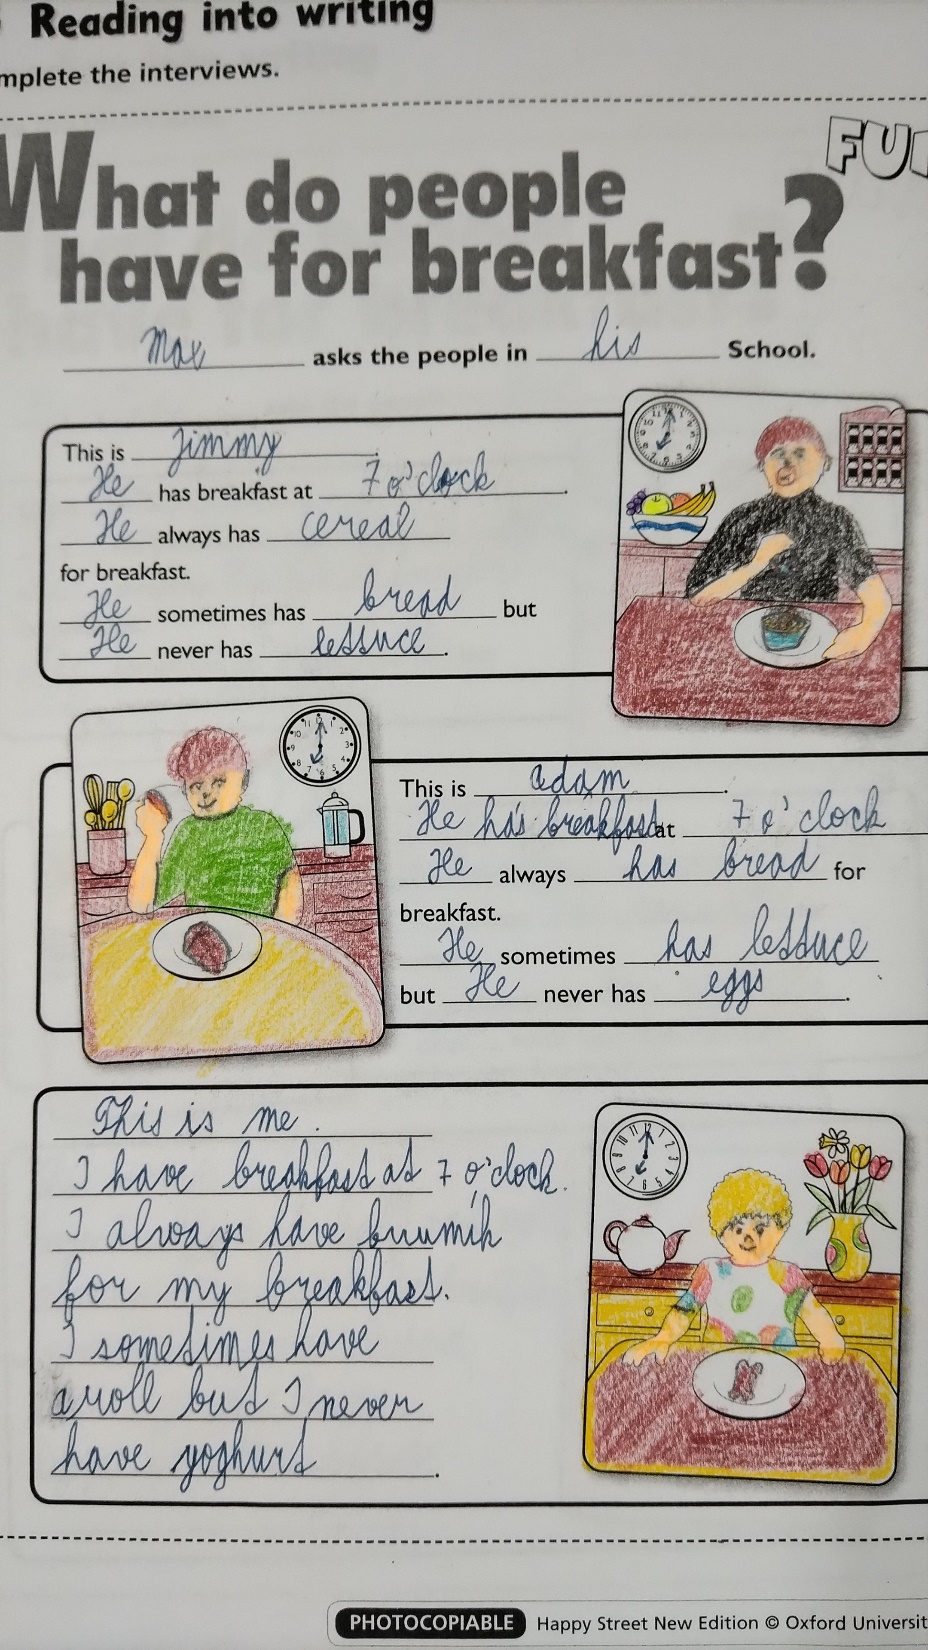 Reading into writing
mplete the interviews.
FU
What do people
have for breakfast?
Max asks the people in his School.
This is Jimmy.
He has breakfast at 7 o'clock.
He always has cereal
for breakfast.
He sometimes has bread but
He never has lettuce.
This is adam.
He has breakfast at 7 o'clock
He always has bread for
breakfast.
He sometimes has lettuce
but He never has eggs.
This is me.
I have breakfast at 7 o'clock.
I always have
for my breakfast.
I sometimes have
a roll but I never
have yoghurt.
PHOTOCOPIABLE Happy Street New Edition © Oxford Universit